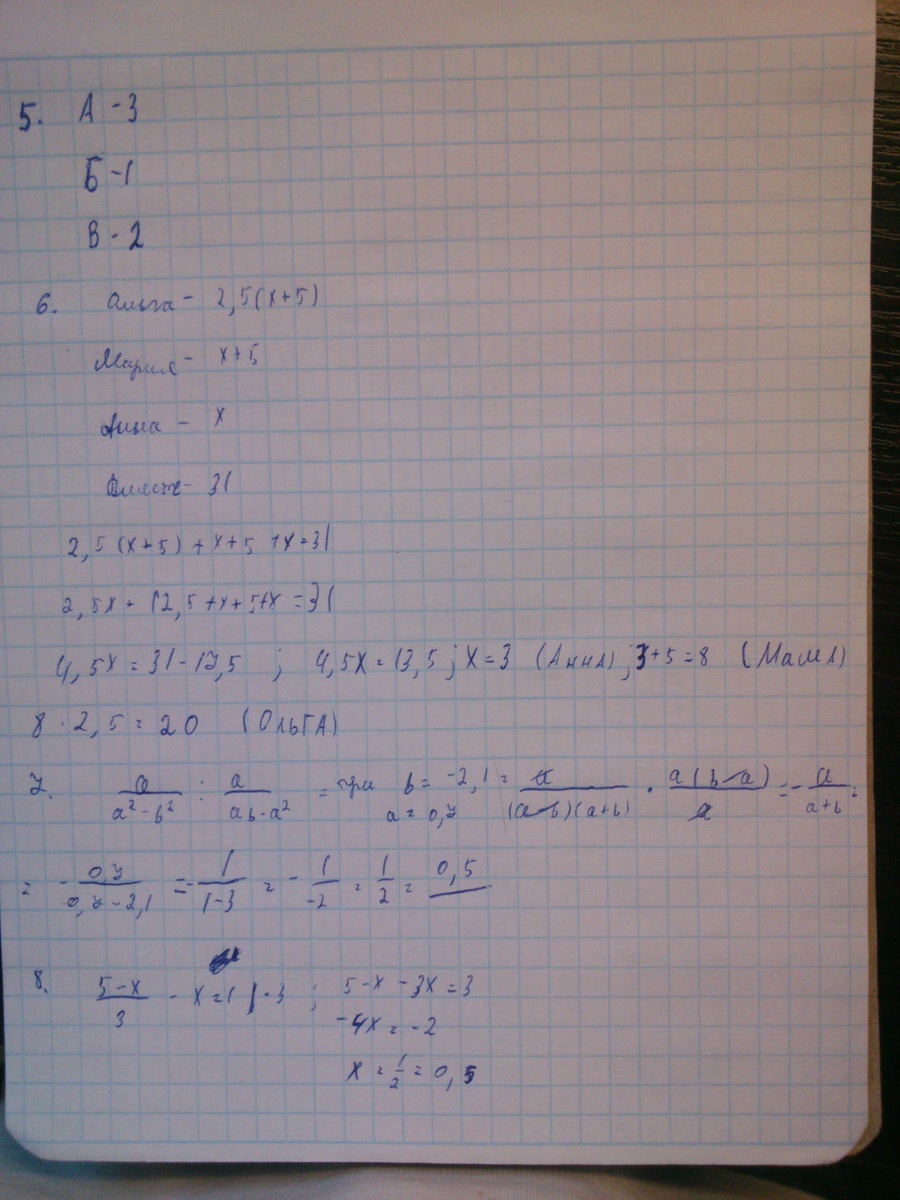 5. А - 3
Б - 1
В - 2
6. Ольга - 2,5(x+5)
Мария - x+5
Анна - x
Вместе - 31
2,5(x+5) + x+5 + x = 31
2,5x + 12,5 + x + 5 + x = 31
4,5x = 31 - 17,5 ; 4,5x = 13,5 ; x = 3 (АННА) ; 3+5 = 8 (МАШЛ)
8 · 2,5 = 20 (ОЛЬГА)
7. a/(a² - b²) : a/(ab - a²) = при b = -2,1 a = 0,7 = a/((a-b)(a+b)) · a(b-a)/a = - a/(a+b) =
= - 0,7/(0,7 - 2,1) = - 1/(1-3) = - 1/-2 = 1/2 = 0,5
8. (5-x)/3 - x = 1 | · 3 ; 5 - x - 3x = 3
-4x = -2
x = 1/2 = 0,5